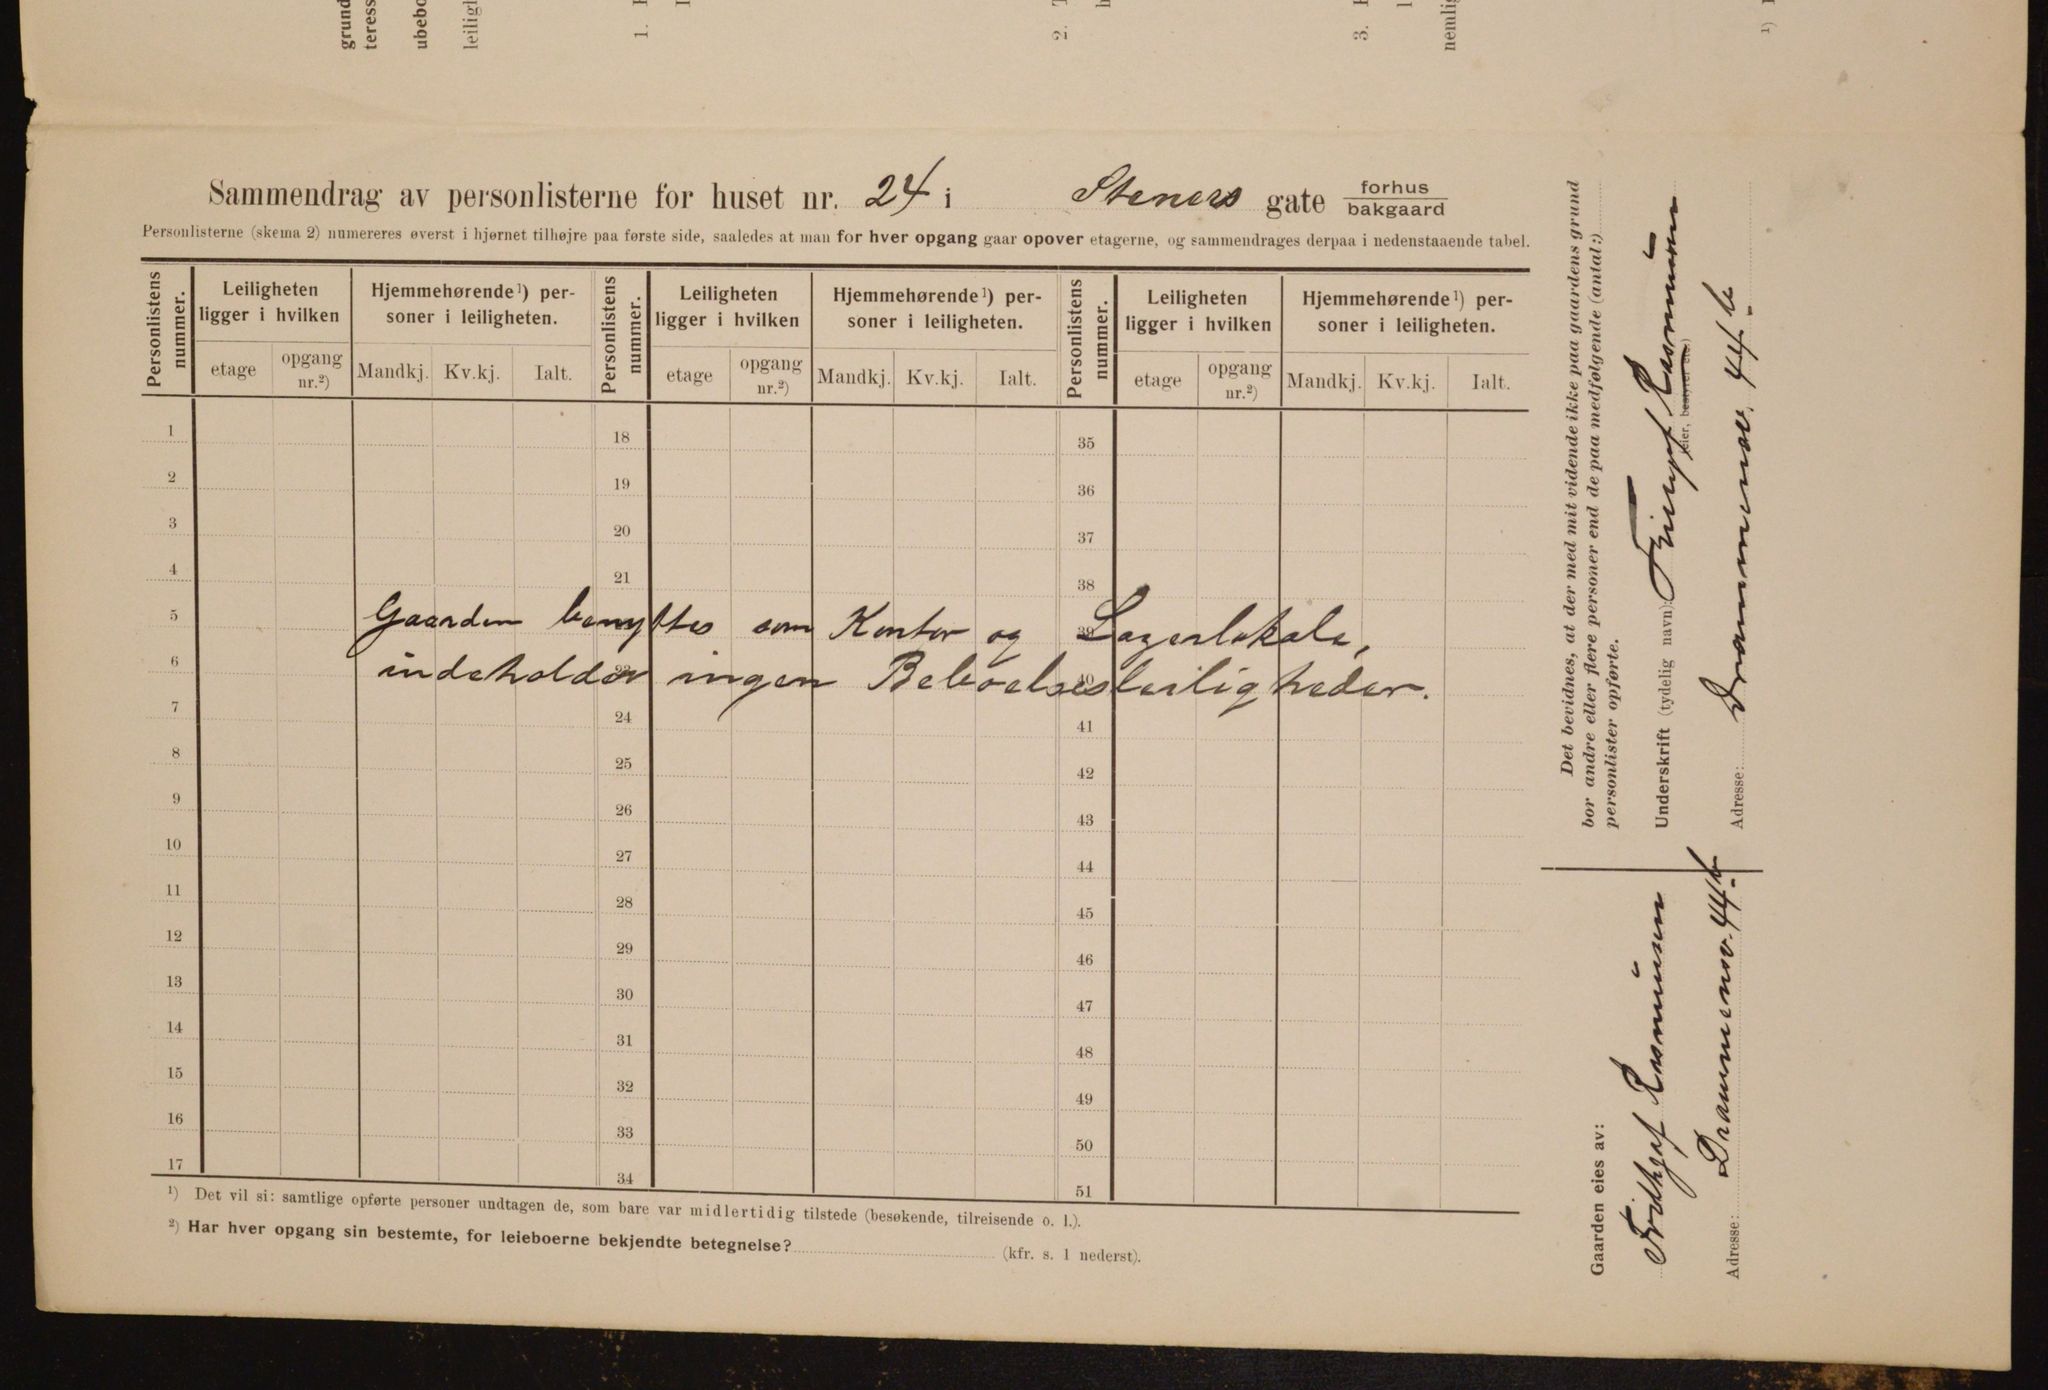 grund
teress
ubebo
leiligh
1.
2.
3.
nemlig
1)
Sammendrag av personlisterne for huset nr. 24 i Steners gate forhus
bakgaard
Personlisterne (skema 2) numereres øverst i hjørnet tilhøjre paa første side, saaledes at man for hver opgang gaar opover etagerne, og sammendrages derpaa i nedenstaaende tabel.
Personlistens nummer. Leiligheten ligger i hvilken Hjemmehørende 1) personer i leiligheten. Personlistens nummer. Leiligheten ligger i hvilken Hjemmehørende 1) personer i leiligheten. Personlistens nummer. Leiligheten ligger i hvilken Hjemmehørende 1) personer i leiligheten.
etage opgang nr.2) Mandkj. Kv.kj. Ialt. etage opgang nr.2) Mandkj. Kv.kj. Ialt. etage opgang nr.2) Mandkj. Kv.kj. Ialt.
1 18 35
2 19 36
3 20 37
4 21 38
5 39
Gaarden benyttes som Kontor og Lagerlokale,
6 23 40
indeholder ingen Beboelsesleiligheder.
7 24 41
8 25 42
9 26 43
10 27 44
11 28 45
12 29 46
13 30 47
14 31 48
15 32 49
16 33 50
17 34 51
1) Det vil si: samtlige opførte personer undtagen de, som bare var midlertidig tilstede (besøkende, tilreisende o. l.).
2) Har hver opgang sin bestemte, for leieboerne bekjendte betegnelse? (kfr. s. 1 nederst).
Det bevidnes, at der med mit vidende ikke paa gaardens grund
bor andre eller flere personer end de paa medfølgende (antal:)
personlister opførte.
Underskrift (tydelig navn): Rasmüssen
(eier, bestyrer etc.)
Adresse: Drammensv. 44 b
Gaarden eies av:
Fridthjof Rasmüssen
Adresse: Drammensv. 44 b